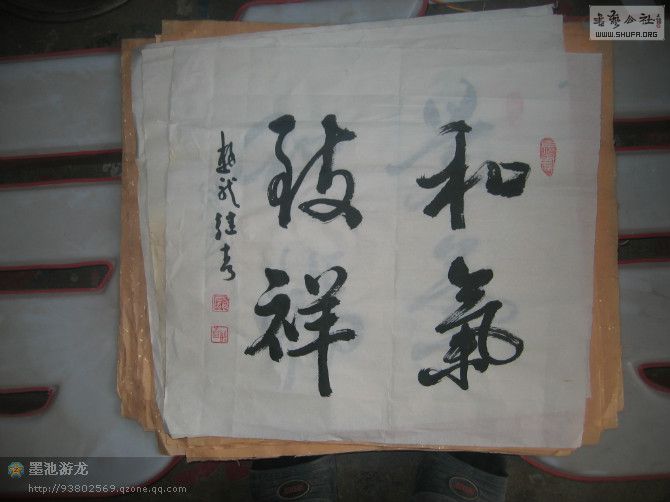 和氣
致祥
书艺公社
WWW.SHUFA.ORG
墨池游龙
http://93802569.qzone.qq.com